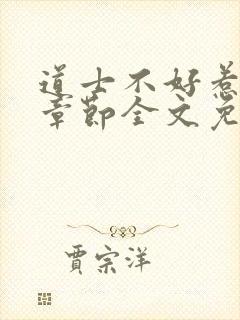 道士不好惹
章节全文免
贾宗洋